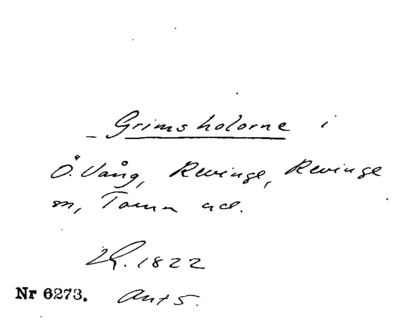 Grimsholorne i
Ö. Vång, Revinge, Revinge
sn, Torna hd.
LR. 1822
Nr 6273. Ant 5.